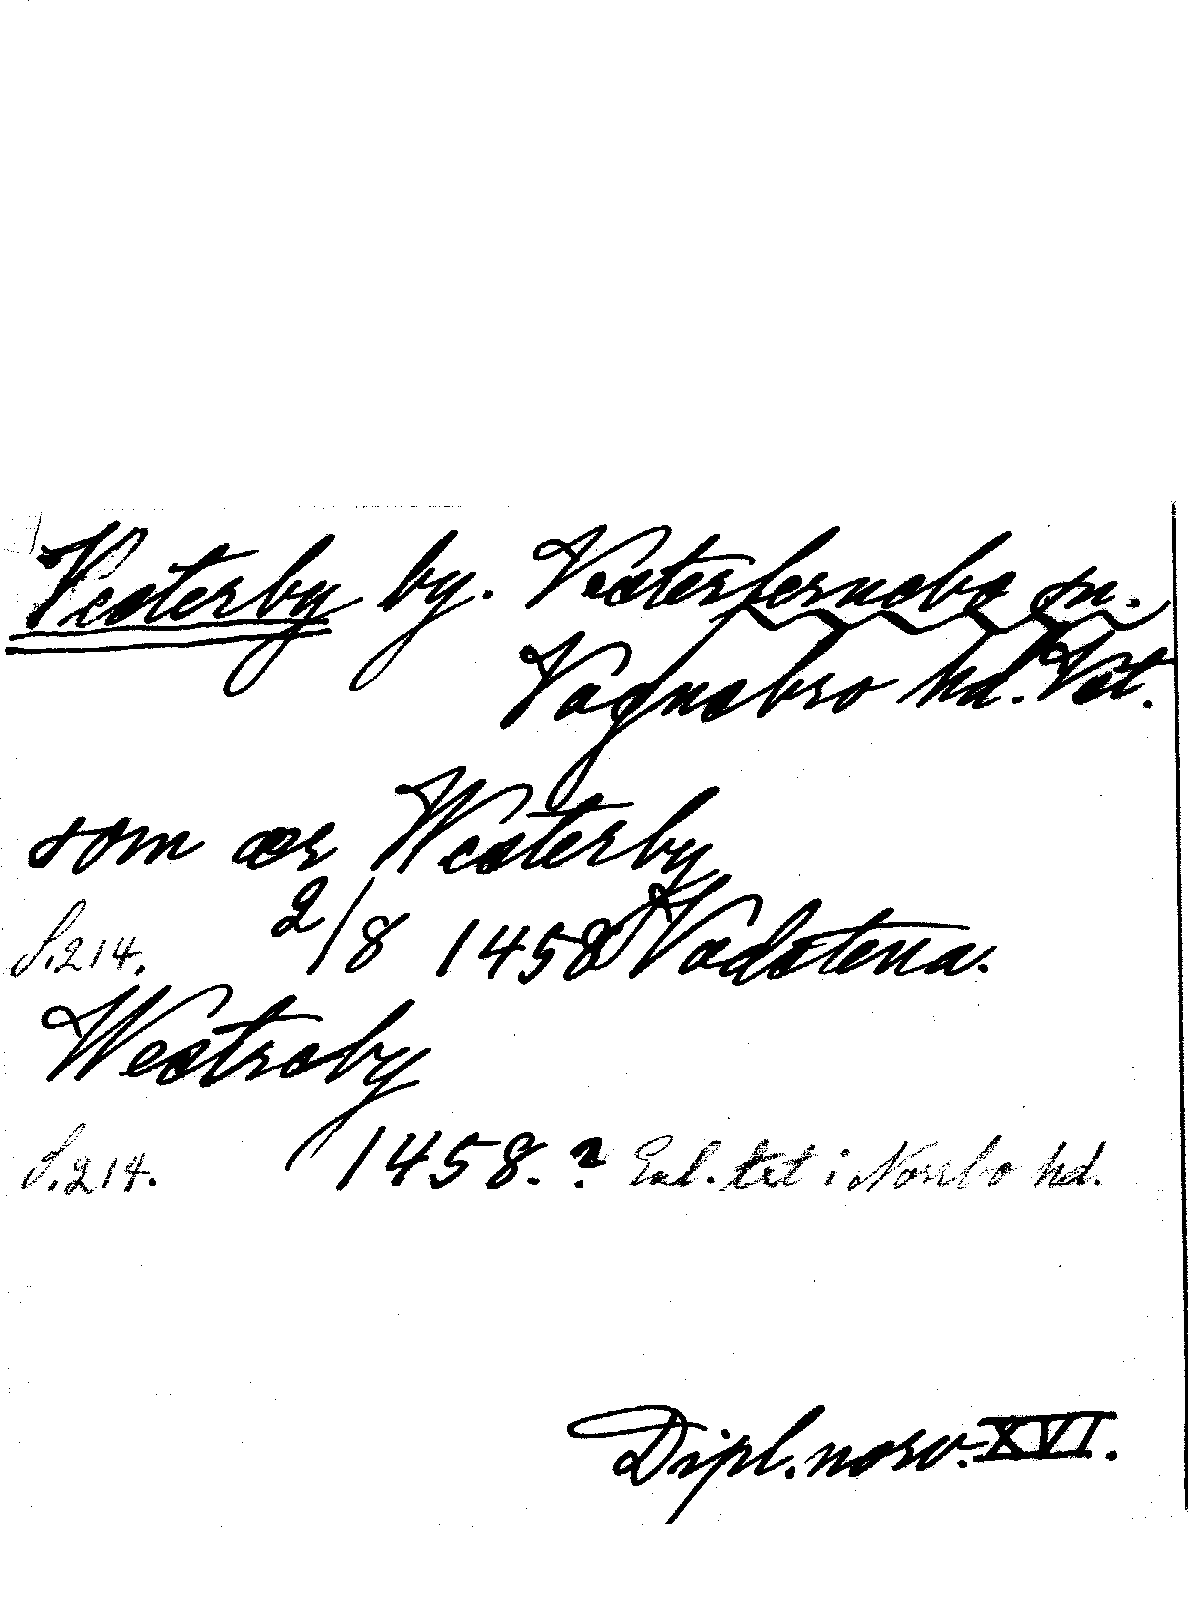 Vesterby by. Västerfernebo sn.
Vagnsbro hd. Vst.
som ær Westerby
S.214. 2/8 1458 Vadstena.
Westraby
S.214. 1458.? Enl. txt i Norrbo hd.
Dipl. norv. XVI.